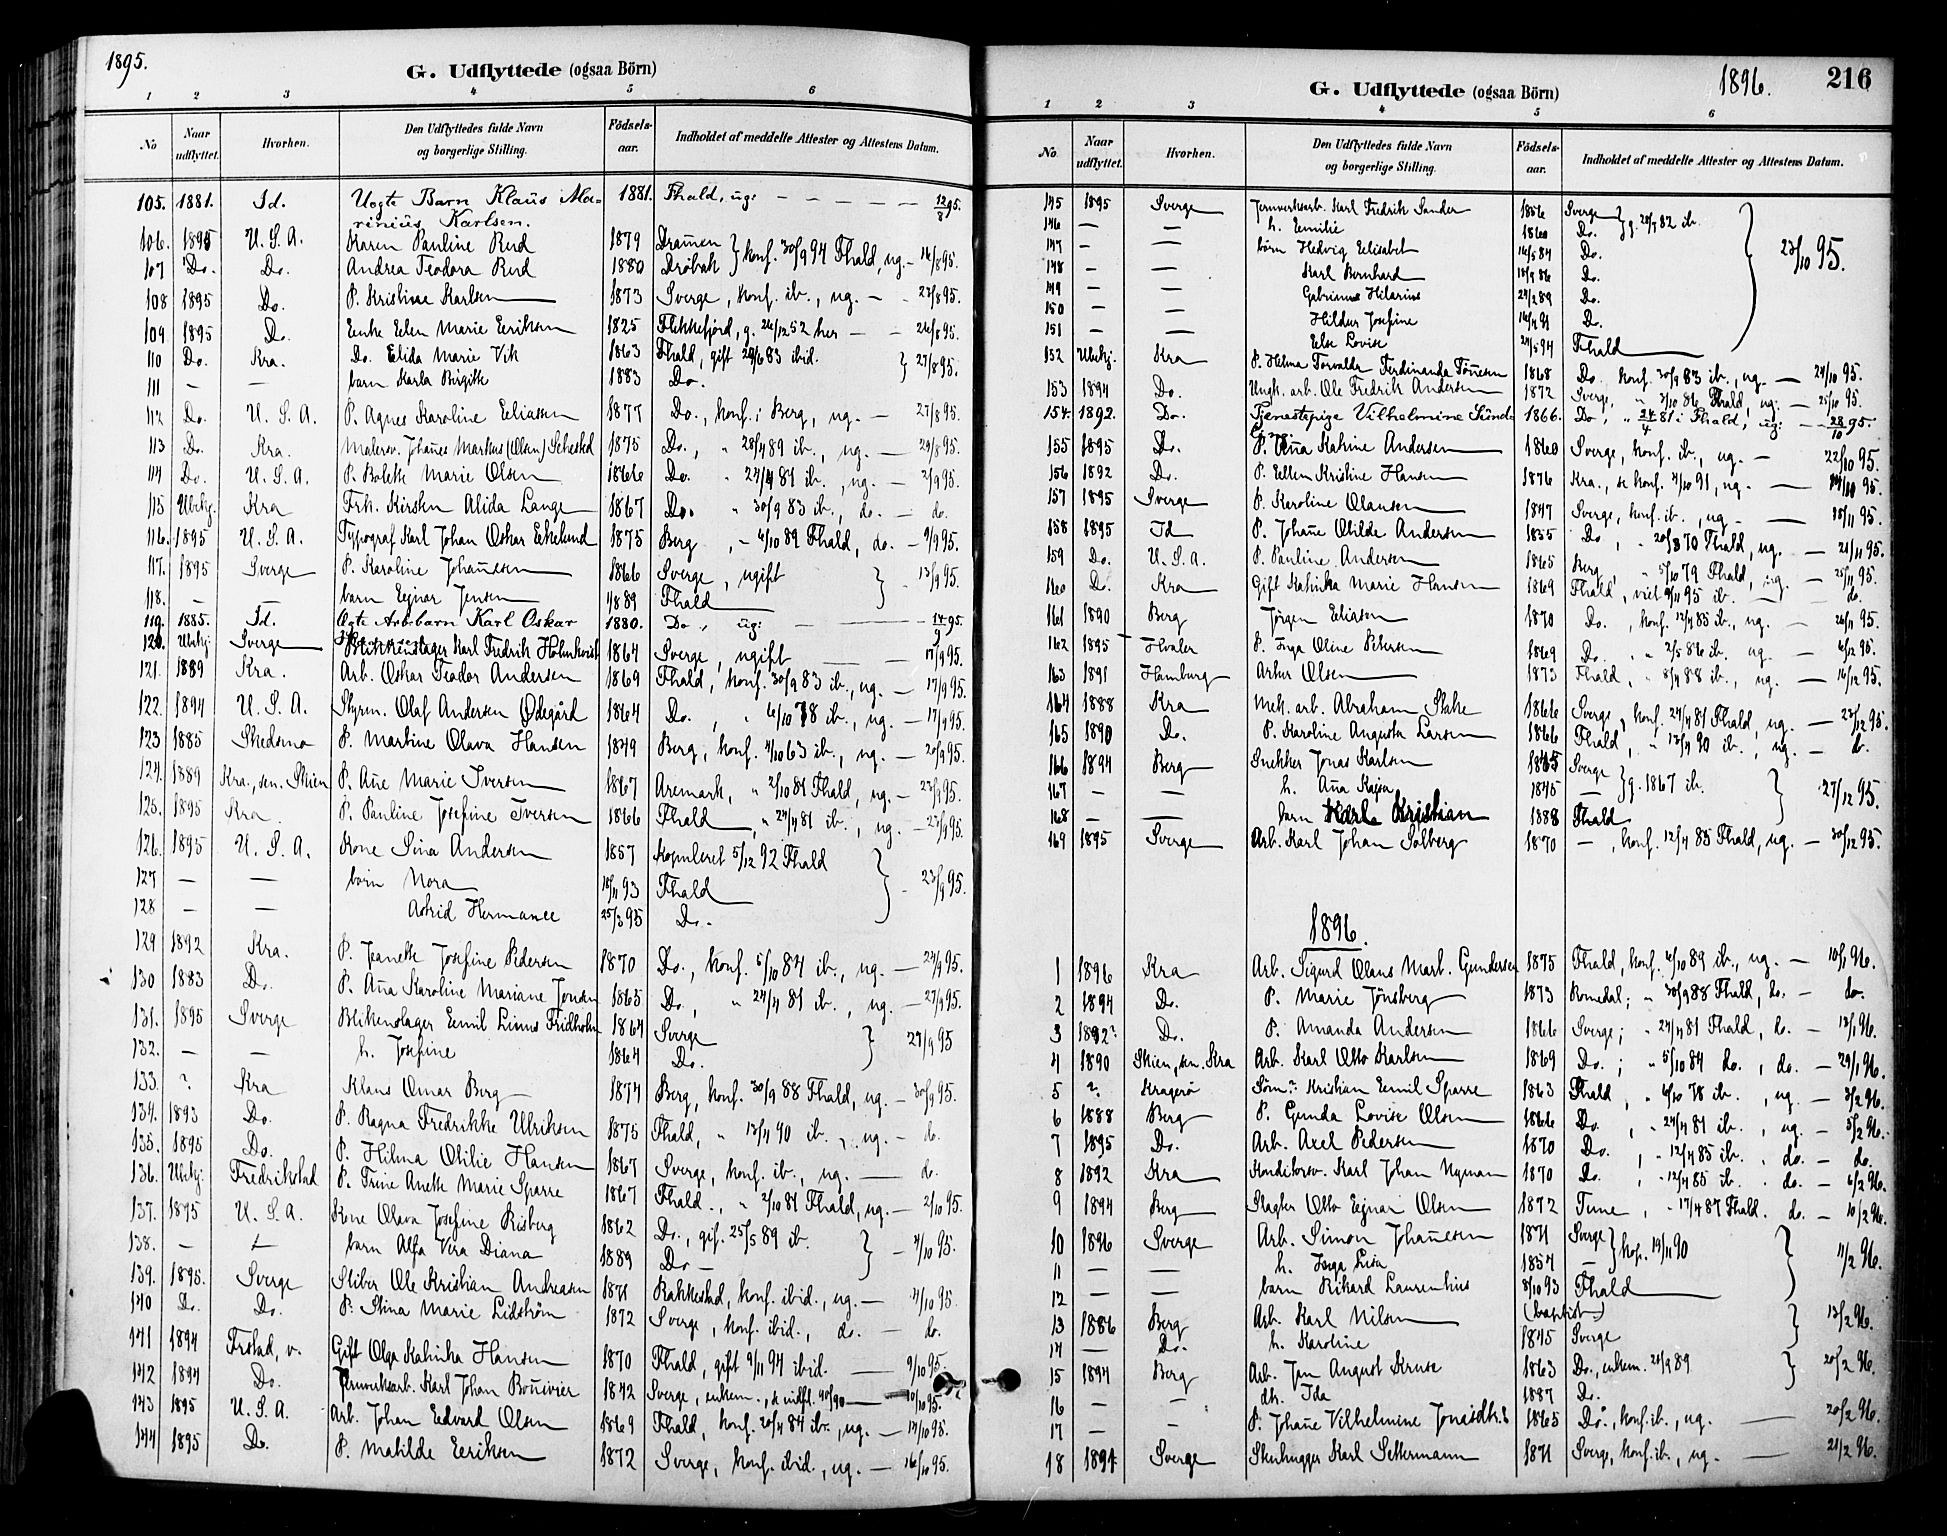 1895.
G. Udflyttede (ogsaa Börn)
1 2 3 4 5 6
No Naar udflyttet. Hvorhen. Den Udflyttedes fulde Navn og borgerlige Stilling. Födselsaar. Indholdet af meddelte Attester og Attestens Datum.
105. 1881. Id. Uegte Barn Klaus Ma= 1881. Fhald, ug: — — — — — 12/8 95.
rinius Karlsen.
106. 1895 U. S. A. Karen Pauline Rud 1879 Dramen } konf. 30/9 94 Fhald, ug. — 16/8 95.
107 Do. Do. Andrea Teodora Rud 1880 Dröbak
108 1895 Do. P. Kristine Karlsen 1873 Sverge, konf. ib., ug. — 23/8 95.
109 1895 Do. Enke Elen Marie Eriksen 1825 Flekkefjord, g. 26/12 52 her — 26/8 95.
110 Do. Kra. Do. Elida Marie Vik 1863 Fhald, gift 29/6 83 ibid. } 27/8 95.
111 — — barn Karla Birgitte 1883 Do.
112 Do. U. S. A. P. Agnes Karoline Eliassen 1877 Do., konf. i Berg, ug. — 27/8 95.
113 Do. Kra. Malersv. Johanes Markus (Olsen) Sehested 1875 Do., " 28/4 89 ib., ug. — 29/8 95.
114 Do. U. S. A. P. Bolette Marie Olsen 1866 Do. " 24/4 81 ib., ug. — 2/9 95.
115 Ubekj. Kra Frk. Kirsten Alida Lange 1867 Do. " 30/9 83 ib., do. — do.
116. 1895 U. S. A. Typograf Karl Johan Oskar Ekelund 1875 Berg, " 6/10 89 Fhald, do. — 9/9 95.
117. 1895 Sverge P. Karoline Johannesen 1866 Sverge, ugift } — 13/9 95.
118. — — barn Ejnar Jensen 1889 Fhald
119. 1885. Id. Ægte Arb.barn Karl Oskar 1880. Do., ug: — — 14/9 95.
120. Ubekj. Sverge Blikkenslager Karl Fredrik Holmkvist 1864 Sverge, ugift — — 17/9 95.
121. 1889 Kra. Arb. Oskar Teodor Andersen 1869 Fhald, konf. 30/9 83 ib., ug. — 17/9 95.
122. 1894 U. S. A. Styrm. Olaf Andersen Ødegård 1864 Do., " 6/10 78 ib., ug. — 17/9 95.
123 1885 Skedsmo P. Martine Olava Hansen 1849 Berg, konf. 4/10 63 ib., ug. — 20/9 95.
124. 1889 Kra., sen. Skien P. Ane Marie Iversen 1867 Aremark, " 2/10 81 Fhald, ug. — 23/9 95.
125. 1895 Kra. P. Pauline Josefine Iversen 1866 Fhald, " 24/4 81 ib., ug. — 23/9 95.
126. 1895 U. S. A. Kone Lina Andersen 1857 kopuleret 5/12 92 Fhald } — 23/9 95.
127 — — börn Nora 18/11 93 Fhald
128 — — Astrid Hermanee 25/3 95 Do.
129 1892 Kra. P. Jeanette Josefine Pedersen 1870 Do., konf. 5/10 84 ib., ug. — 24/9 95.
130 1883 Do. P. Ana Karoline Mariane Jensen 1865 Do., " 24/4 81 ib., ug. — 27/9 95.
131. 1895 Sverge Blikenslager Emil Linus Fridholm 1864 Sverge } 27/9 95
132. — — h. Josefine 1864 Do.
133. ? Kra Klaus Omar Berg 1874 Berg, konf. 30/9 88 Fhald, ug. — 30/9 95.
134. 1893 Do. P. Ragna Fredrikke Ulriksen 1875 Fhald, " 13/4 90 ib., ug. — do.
135. 1895 Do. P. Hilma Otilie Hansen 1867 Sverge, konf. ib., ug. — do.
136. Ubekj. Fredrikstad P. Trine Anette Marie Sparre 1867 Fhald., " 2/10 81 Fhald, ug. — 2/10 95.
137. 1895 U. S. A. Kone Olava Josefine Risberg 1862 Do., gif. 25/5 89 ib. } — 4/10 95.
138. — — barn Alfa Vera Diana 1889 Do —
139. 1895. Sverge Sliber Ole Kristian Andreasen 1871 Rakkestad, konf. ibid., ug. — 4/10 95.
140 Do. Do. P. Stina Marie Lidström 1872 Sverge, konf. ibid., do. — do.
141 1894 Frstad, v. Gift Olga Katinka Hansen 1870 Fhald, gift 9/11 94 ibid. — 9/10 95.
142 1894 Do. Jernverksarb. Karl Johan Bouvier 1842 Sverge, enkem., — 10/10 95.
143 1895 U. S. A. Arb. Johan Edvard Olsen 1869 Fhald, konf. 20/4 84 ib., ug. — 14/10 95.
144 1895 Do. P. Matilde Eriksen 1872 Sverge, konf. ibid., ug. — 16/10 95.
1896. 216
G. Udflyttede (ogsaa Börn)
1 2 3 4 5 6
No. Naar udflyttet. Hvorhen. Den Udflyttedes fulde Navn og borgerlige Stilling. Födselsaar. Indholdet af meddelte Attester og Attestens Datum.
145 1895 Sverge Jernverksarb. Karl Fredrik Sander 1856 Sverge } g. 28/7 82 ib. } 23/10 95.
146 — — h. Emilie 1860 Do.
147 — — börn Hedvig Elisabet 16/5 84 Do.
148 — — Karl Bernhard 18/9 86 Do.
149 — — Gabrinus Hilarius 24/2 89 Do.
150 — — Hildur Josefine 14/4 91 Do.
151 — — Else Lovise 24/5 94 Fhald
152 Ubekj. Kra P. Helma Torvalda Ferdinanda Tönesen 1868 Do., konf. 30/9 83 ib., ug. — 24/10 95.
153 1894 Do. Ungk. arb. Ole Fredrik Andersen 1872 Sverge, " 3/10 86 Fhald, ug. — 25/10 95.
154. 1892. Do. Tjenestepige Vilhelmine 1866. Do, " 24/4 81 i Fhald, ug: — 28/10 95.
155 1895 Do. P. Ana Katrine Andersen 1860 Sverge, konf. ib., ug. — 22/10 95.
156 1892 Do. P. Ellen Kristine Hansen 1876 Kra., konf. 4/10 91, ug. — 95.
157 1895 Sverge P. Karoline Olausen 1847 Sverge, konf. ib., ug. — 18/11 95.
158 1895 Id P. Johane Otilde Andersen 1855 Do, " 20/8 70 Fhald, ug. — 21/11 95.
159 Do. U. S. A. P. Pauline Andersen 1865 Berg " 5/10 79 Fhald, ug. — 25/11 95.
160 Do. Kra Gift Katinka Marie Hansen 1869 Fhald, viet 9/11 95 ib. — do.
161 1890 Berg Jörgen Eliasen 1870 Do., konf. 12/4 85 ib., ug. — 26/11 95.
162 1895 Hvaler P. Inga Oline Petersen 1869 Do. " 2/5 86 ib. ug. — 6/12 95.
163 1891 Hamburg Artur Olsen 1873 Fhald, " 8/4 88 ib., ug. — 16/12 95.
164 1888 Kra Mek. arb. Abraham Stake 1866 Sverge, konf. 24/4 81 Fhald, ug. — 23/12 95
165 1890 Do. P. Karoline Augusta Larsen 1866 Fhald, " 13/4 90 ib., ug. — do.
166 1894 Berg Snekker Jonas Karlsen 1845 Sverge } g. 1867 ib. } 27/12 95.
167 — — h. Ana Kajsa 1845 —
168 — — barn Karl Kristian 1888 Fhald
169 1895 Sverge Arb. Karl Johan Solberg 1870 —, konf. 12/4 85 Fhald, ug. — 30/12 95.
1896.
1 1896 Kra Arb. Sigurd Olaus Mart. Gundersen 1875 Fhald, konf. 6/10 89 ib., ug. — 10/1 96.
2 1894 Do. P. Marie Tönsberg 1873 Romedal; " 30/9 88 Fhald, do. — do.
3 1892? Do. P. Amanda Andersen 1866 Sverge; " 24/4 81 Fhald, do. — 13/1 96.
4 1890 Skien, sen. Kra Arb. Karl Otto Karlsen 1869 Do.; " 5/10 84 do., do. — 29/1 96.
5 ? Kragerø Söm? Kristian Emil Sparre 1863 Fhald, " 6/10 78 ib., ug. — 3/2 96.
6 1888 Berg P. Gunda Lovise Olsen 1866 Do., " 24/4 81 ib., ug. — 5/2 96.
7 1895 Do. Arb. Axel Pedersen 1870 Do., " 12/4 85 ib., do. — do.
8 1892 Kra Konditorsv. Karl Johan Nyman 1870 Do., " 12/4 85 ib., do. — 6/2 96.
9 1894 Berg Slagter Otto Ejnar Olsen 1872 Tune, " 17/4 87 Fhald. do. — 10/2 96.
10 1896 Sverge Arb. Simon Johanesen 1871 Sverge } kop. 14/11 90 } 11/2 96.
11 — — h. Inga Lisa 1857 —
12 — — barn Rikard Laurentius 8/10 93 Fhald
13 1886 Berg Arb. Karl Nilsen (baptist) } 13/2 96.
14 — Do. h. Karoline 1845 Sverge
15 1894 Berg Arb. Jan August Kruse 1863 Do., enkem. 21/9 89 } 20/2 96.
16 — — dtr. Ida 1887 Do.
17 — — P. Johane Vilhelmine Jonasdtr. 1865 Do., konf. ib., ug. — 20/2 96.
18 1894 Sverge Stenhugger Karl Settermann 1871 Sverge, konf. ib., ug. — 21/2 96.